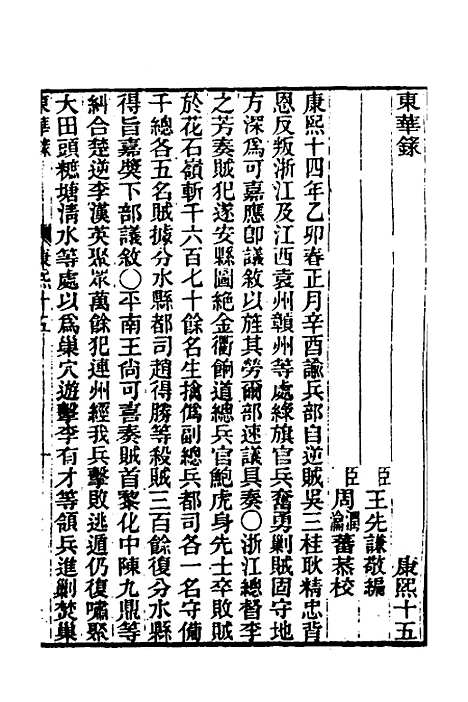 東華錄　康熙十五
臣王先謙敬編
臣周潤蕃瀹蕃恭校
康熙十四年乙卯春正月辛酉諭兵部自逆賊吳三桂耿精忠背
恩反叛浙江及江西袁州贛州等處綠旗官兵奮勇剿賊固守地
方深爲可嘉應卽議敘以旌其勞爾部速議具奏○浙江總督李
之芳奏賊犯遂安縣圖絕金衢餉道總兵官鮑虎身先士卒敗賊
於花石嶺斬千六百七十餘名生擒僞副總兵都司各一名守備
千總各五名賊據分水縣都司趙得勝等殺賊三百餘復分水縣
得旨嘉獎下部議敘○平南王尚可喜奏賊首黎化中陳九鼎等
糾合楚逆李漢英聚眾萬餘犯連州經我兵擊敗逃遁仍復嘯聚
大田頭糍塘淸水等處以爲巢穴遊擊李有才等領兵進剿焚巢
東華錄　康熙十五　一